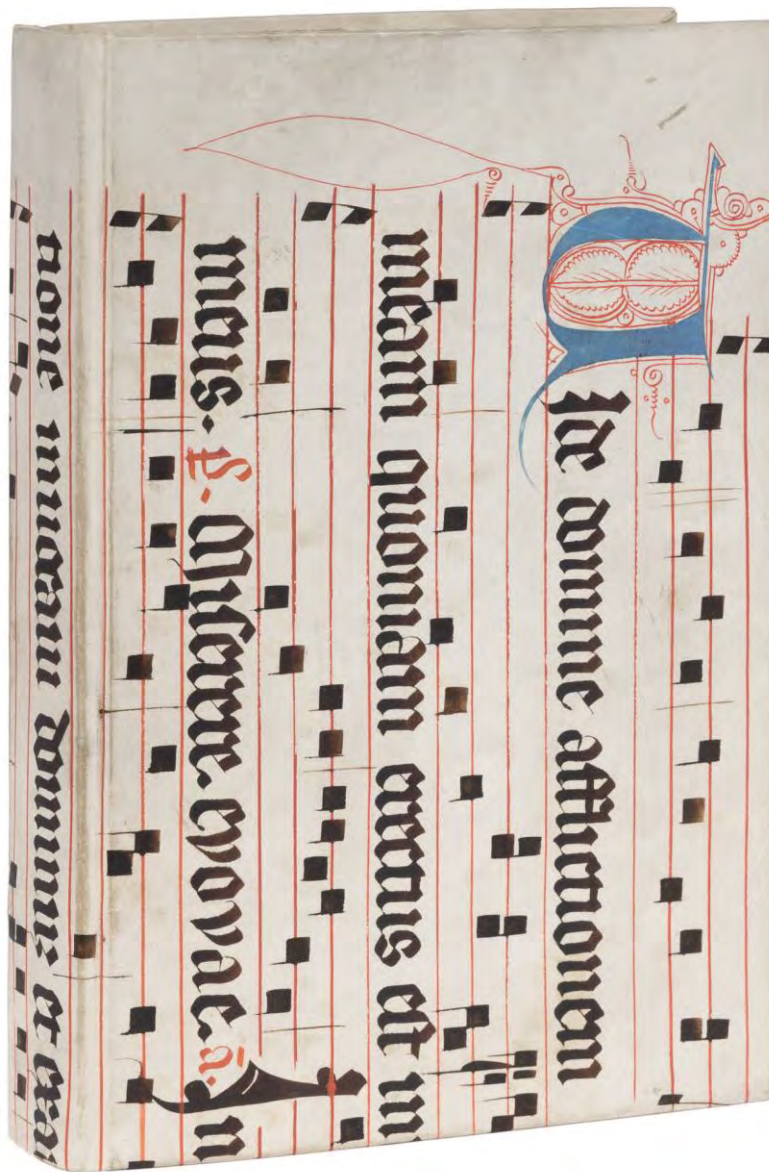 VIde domine afflictionem
meam quoniam erectus est in
meus. Ps. Miserere. evovae. a. In
tione inuocaui dominum et exau